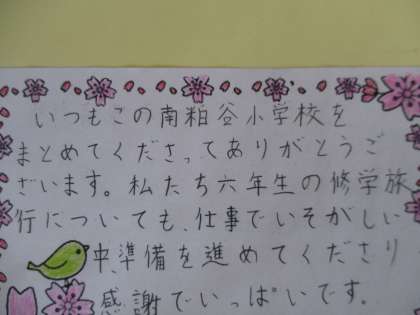 いつもこの南粕谷小学校を
まとめてくださってありがとうご
ざいます。私たち六年生の修学旅
行についても、仕事でいそがしい
中、準備を進めてくださり
感謝でいっぱいです。